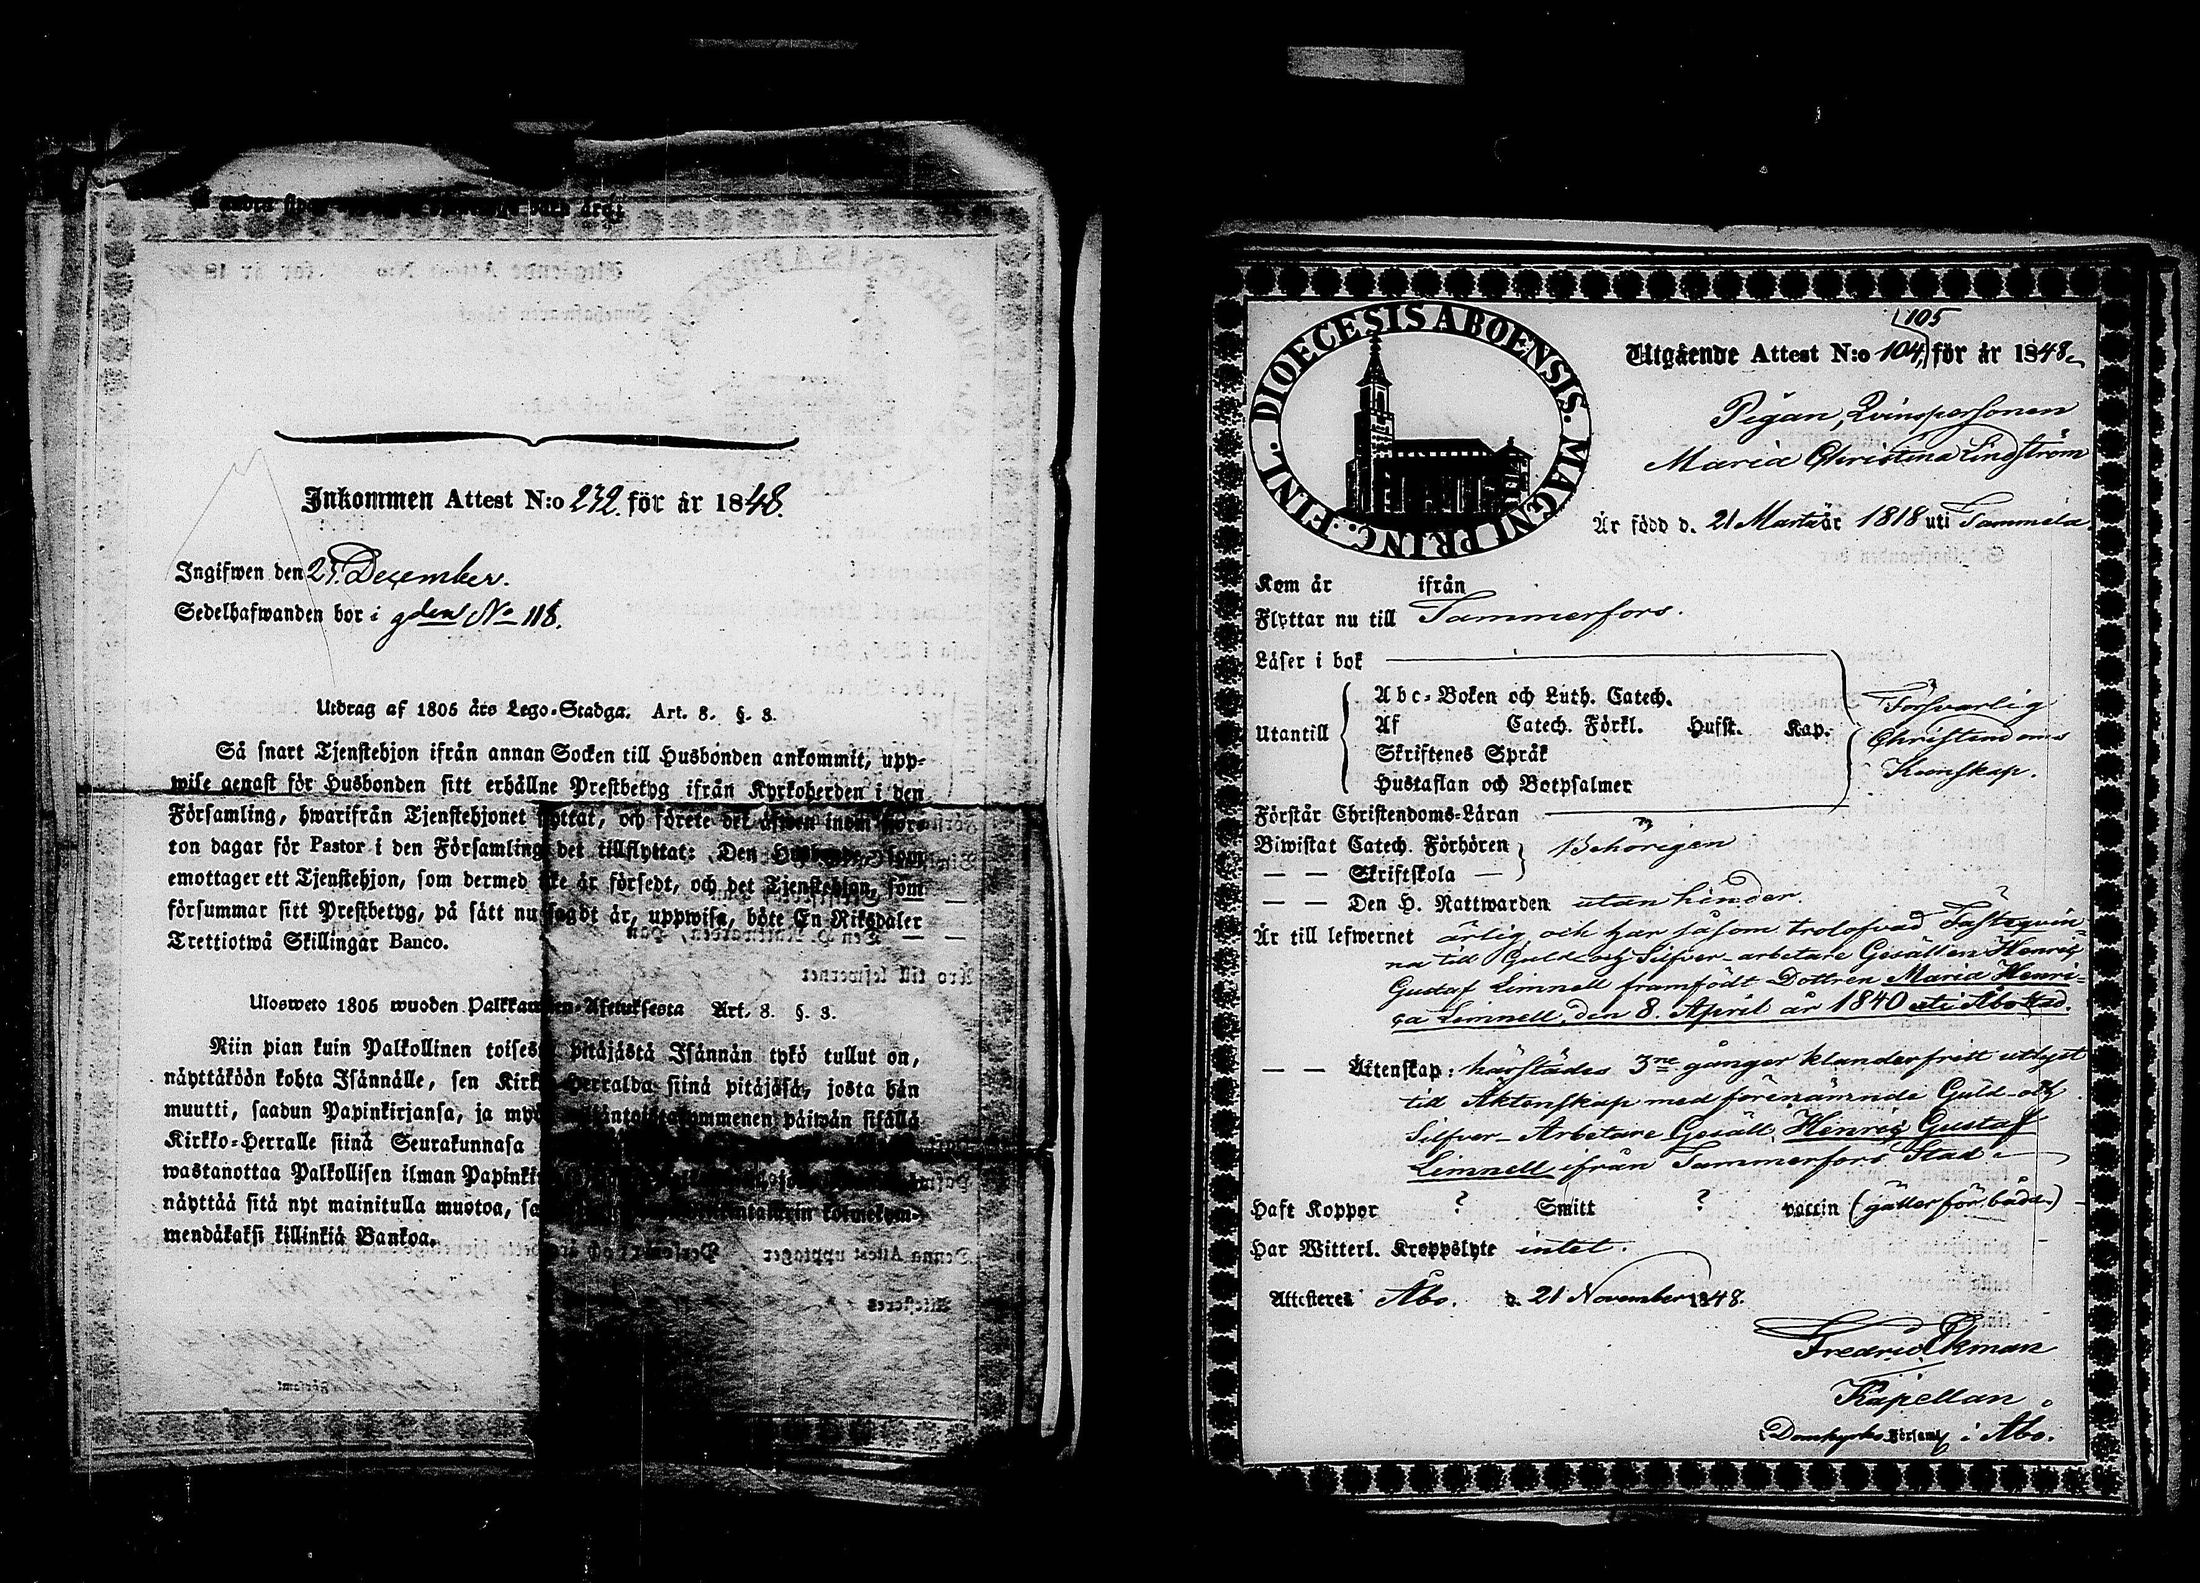 Inkommen Attest N:o 232. för år 1848.
Ingifwen den 27 December.
Sedelhafwanden bor i gården No 118.
Utdrag af 1805 års Lego-Stadga. Art. 8. §. 3.
Så snart Tjenstehjon ifrån annan Socken till Husbonden ankommit, upp-
wise genast för Husbonden sitt erhållne Prestbetyg ifrån Kyrkoherden i den
Församling, hwarifrån Tjenstehjonet flyttat, och förete det äfwen inom fjor-
ton dagar för Pastor i den Församling det tillflyttat: Den Husbonde, som
emottager ett Tjenstehjon, som dermed icke är försedt, och det Tjenstehjon, som
försummar sitt Prestbetyg, på sätt nu sagdt är, uppwisa, böte En Riksdaler
Trettiotwå Skillingar Banco.
Ulosweto 1805 wuoden Palkkawäen-Asetuksesta Art. 8. §. 3.
Niin pian kuin Palkollinen toisesta pitäjästä Isännän tykö tullut on,
näyttäköön kohta Isännälle, sen Kirkko-Herralda siinä pitäjäsä, josta hän
muutti, saadun Papinkirjansa, ja myös neljäntoistakymmenen päiwän sisällä
Kirkko-Herralle siinä Seurakunnasa
wastanottaa Palkollisen ilman Papinki
näyttää sitä nyt mainitulla muotoa, sa kolmekym-
mendäkaksi killinkiä Bankoa.
DIOECESIS ABOENSIS. MAGNI PRINC. FINL.
105
Utgående Attest N:o 104, för år 1848.
Pigan, Qvinspersonen
Maria Christina Lindström
Är född d. 21 Martz år 1818 uti Tammela.
Kom år ifrån
Flyttar nu till Tammerfors.
Läser i bok
Utantill
Abc-Boken och Luth. Catech.
Af Catech. Förkl. Husst. Kap.
Skriftenes Språk
Hustaflan och Botpsalmer
Försvarlig
Christendoms
Kunskap.
Förstår Christendoms-Läran
Biwistat Catech. Förhören Behörigen
— — Skriftskola —
— — Den H. Nattwarden utan hinder.
Är till lefwernet ärlig, och har såsom trolofvad Fästeqvin-
na till Guld och Silfver-arbetare Gesällen Henric
Gustaf Limnell framfödt Dottren Maria Henri-
ca Limnell, den 8. April år 1840 uti Åbo stad.
— — Äktenskap: härstädes 3ne gånger klanderfritt utlyst
till Äktenskap med förenämnde Guld- och
Silfver-Arbetare Gesäll Henric Gustaf
Limnell ifrån Tammerfors Stad
Haft Koppor ? Smitt ? vaccin (gäller för båda.)
Har Witterl. Kroppslyte intet.
Attesteres Åbo. d. 21 November 1848.
Fredric Ekman
Kapellan
i Domkyrko Församl i Åbo.